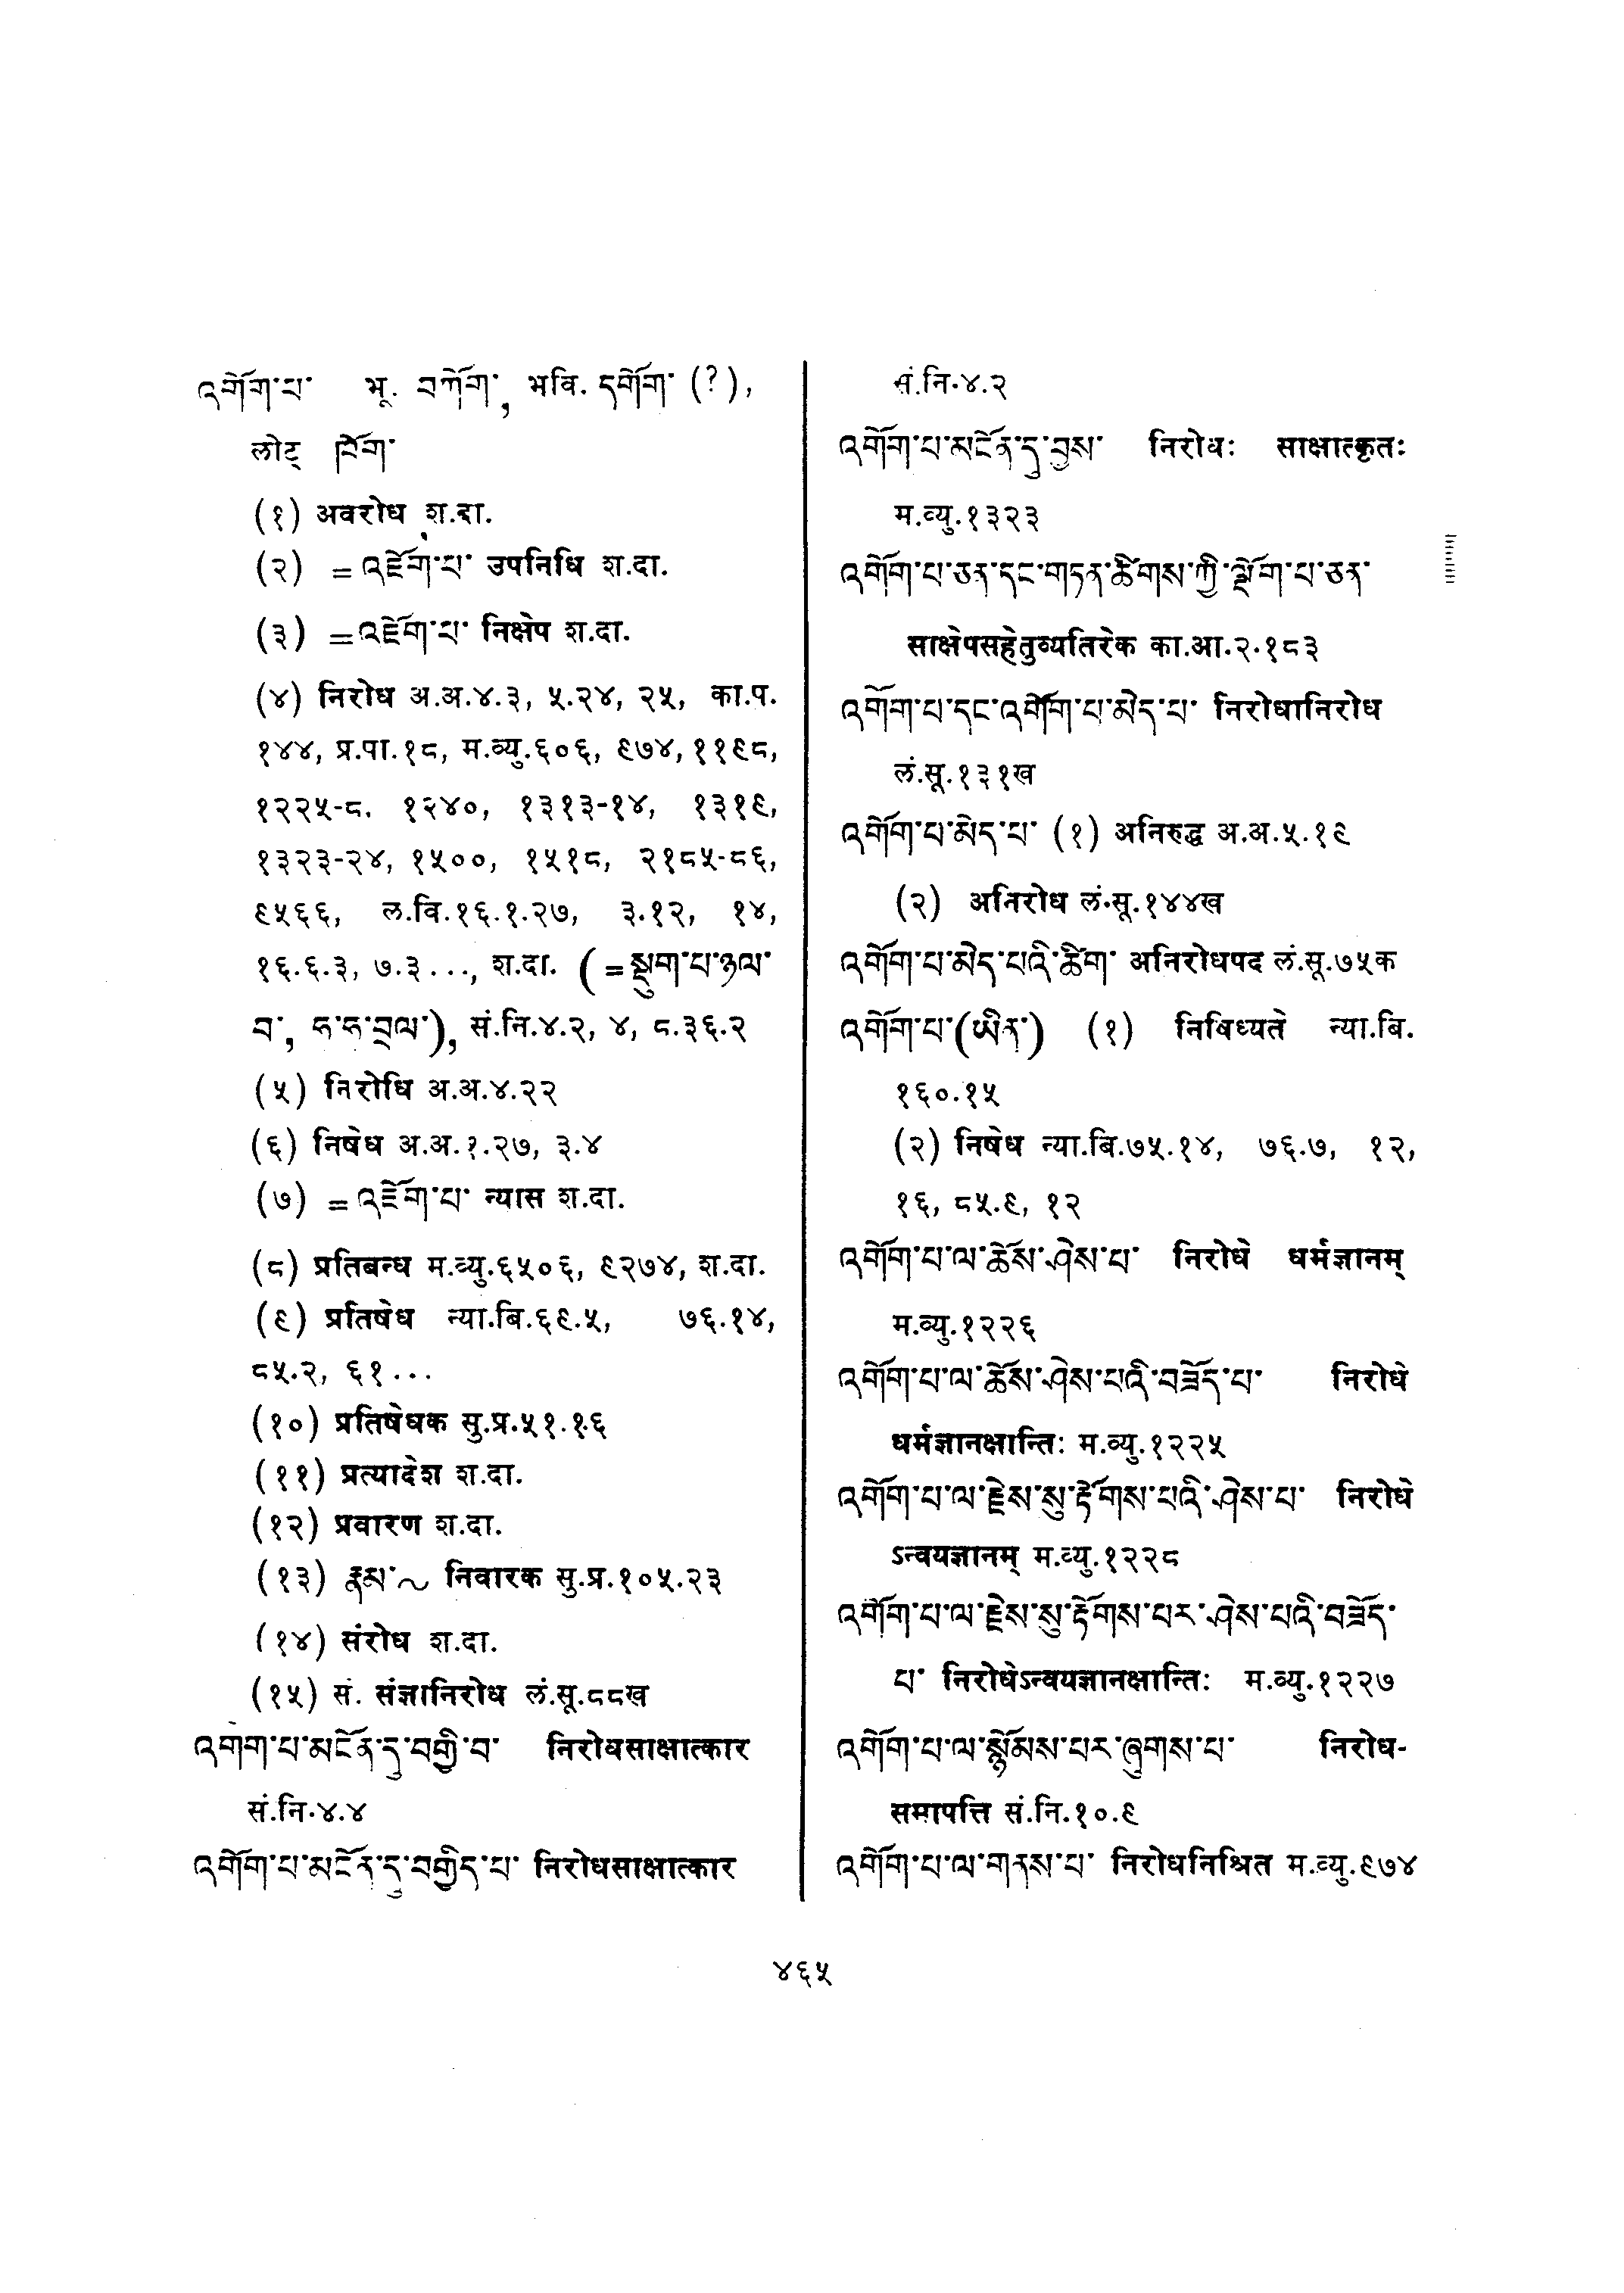 འགོག་པ་ भू. བཀོག་, भवि. དགོག་ (?),
लोट् ཁོག་
(१) अवरोध श.दा.
(२) =འཇོག་པ་ उपनिधि श.दा.
(३) =འཇོག་པ་ निक्षेप श.दा.
(४) निरोध अ.अ.४.३, ५.२४, २५, का.प.
१४४, प्र.पा.१८, म.व्यु.६०६, ९७४, ११९८,
१२२५-८, १२४०, १३१३-१४, १३१९,
१३२३-२४, १५००, १५१८, २१८५-८६,
९५६६, ल.वि.१६.१.२७, ३.१२, १४,
१६.६.३, ७.३..., श.दा. (=སྡུག་པ་ཉལ་
བ་, ཧ་ཧ་བྲལ་), सं.नि.४.२, ४, ८.३६.२
(५) निरोधि अ.अ.४.२२
(६) निषेध अ.अ.१.२७, ३.४
(७) =འཇོག་པ་ न्यास श.दा.
(८) प्रतिबन्ध म.व्यु.६५०६, ९२७४, श.दा.
(९) प्रतिषेध न्या.बि.६९.५, ७६.१४,
८५.२, ६१...
(१०) प्रतिषेधक सु.प्र.५१.१६
(११) प्रत्यादेश श.दा.
(१२) प्रवारण श.दा.
(१३) རྣམ་~ निवारक सु.प्र.१०५.२३
(१४) संरोध श.दा.
(१५) सं. संज्ञानिरोध लं.सू.८८ख
འགོག་པ་མངོན་དུ་བགྱི་བ་ निरोधसाक्षात्कार
सं.नि.४.४
འགོག་པ་མངོན་དུ་བགྱིད་པ་ निरोधसाक्षात्कार
सं.नि.४.२
འགོག་པ་མངོན་དུ་བྱས་ निरोधः साक्षात्कृतः
म.व्यु.१३२३
འགོག་པ་ཅན་དང་གཏན་ཚིགས་ཀྱི་ལྡོག་པ་ཅན་
साक्षेपसहेतुव्यतिरेक का.आ.२.१८३
འགོག་པ་དང་འགོག་པ་མེད་པ་ निरोधानिरोध
लं.सू.१३१ख
འགོག་པ་མེད་པ་ (१) अनिरुद्ध अ.अ.५.१९
(२) अनिरोध लं.सू.१४४ख
འགོག་པ་མེད་པའི་ཚིག་ अनिरोधपद लं.सू.७५क
འགོག་པ་(ཡིན་) (१) निषिध्यते न्या.बि.
१६०.१५
(२) निषेध न्या.बि.७५.१४, ७६.७, १२,
१६, ८५.९, १२
འགོག་པ་ལ་ཆོས་ཤེས་པ་ निरोधे धर्मज्ञानम्
म.व्यु.१२२६
འགོག་པ་ལ་ཆོས་ཤེས་པའི་བཟོད་པ་ निरोधे
धर्मज्ञानक्षान्तिः म.व्यु.१२२५
འགོག་པ་ལ་རྗེས་སུ་རྟོགས་པའི་ཤེས་པ་ निरोधे
ऽन्वयज्ञानम् म.व्यु.१२२८
འགོག་པ་ལ་རྗེས་སུ་རྟོགས་པར་ཤེས་པའི་བཟོད་
པ་ निरोधेऽन्वयज्ञानक्षान्तिः म.व्यु.१२२७
འགོག་པ་ལ་སྙོམས་པར་ཞུགས་པ་ निरोध-
समापत्ति सं.नि.१०.९
འགོག་པ་ལ་གནས་པ་ निरोधनिश्रित म.व्यु.९७४
४६५